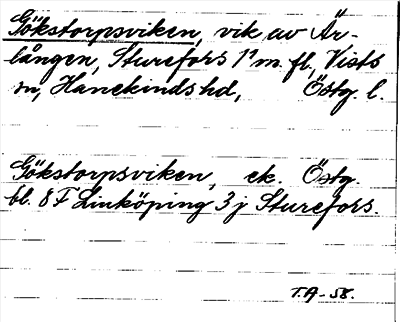 Gökstorpsviken, vik av Är-
lången, Sturefors 1⁹ m. fl., Vists
sn, Hanekinds hd, Östg. l.
Gökstorpsviken, ek. Östg.
bl. 8 F Linköping 3 j Sturefors.
T.A-58.